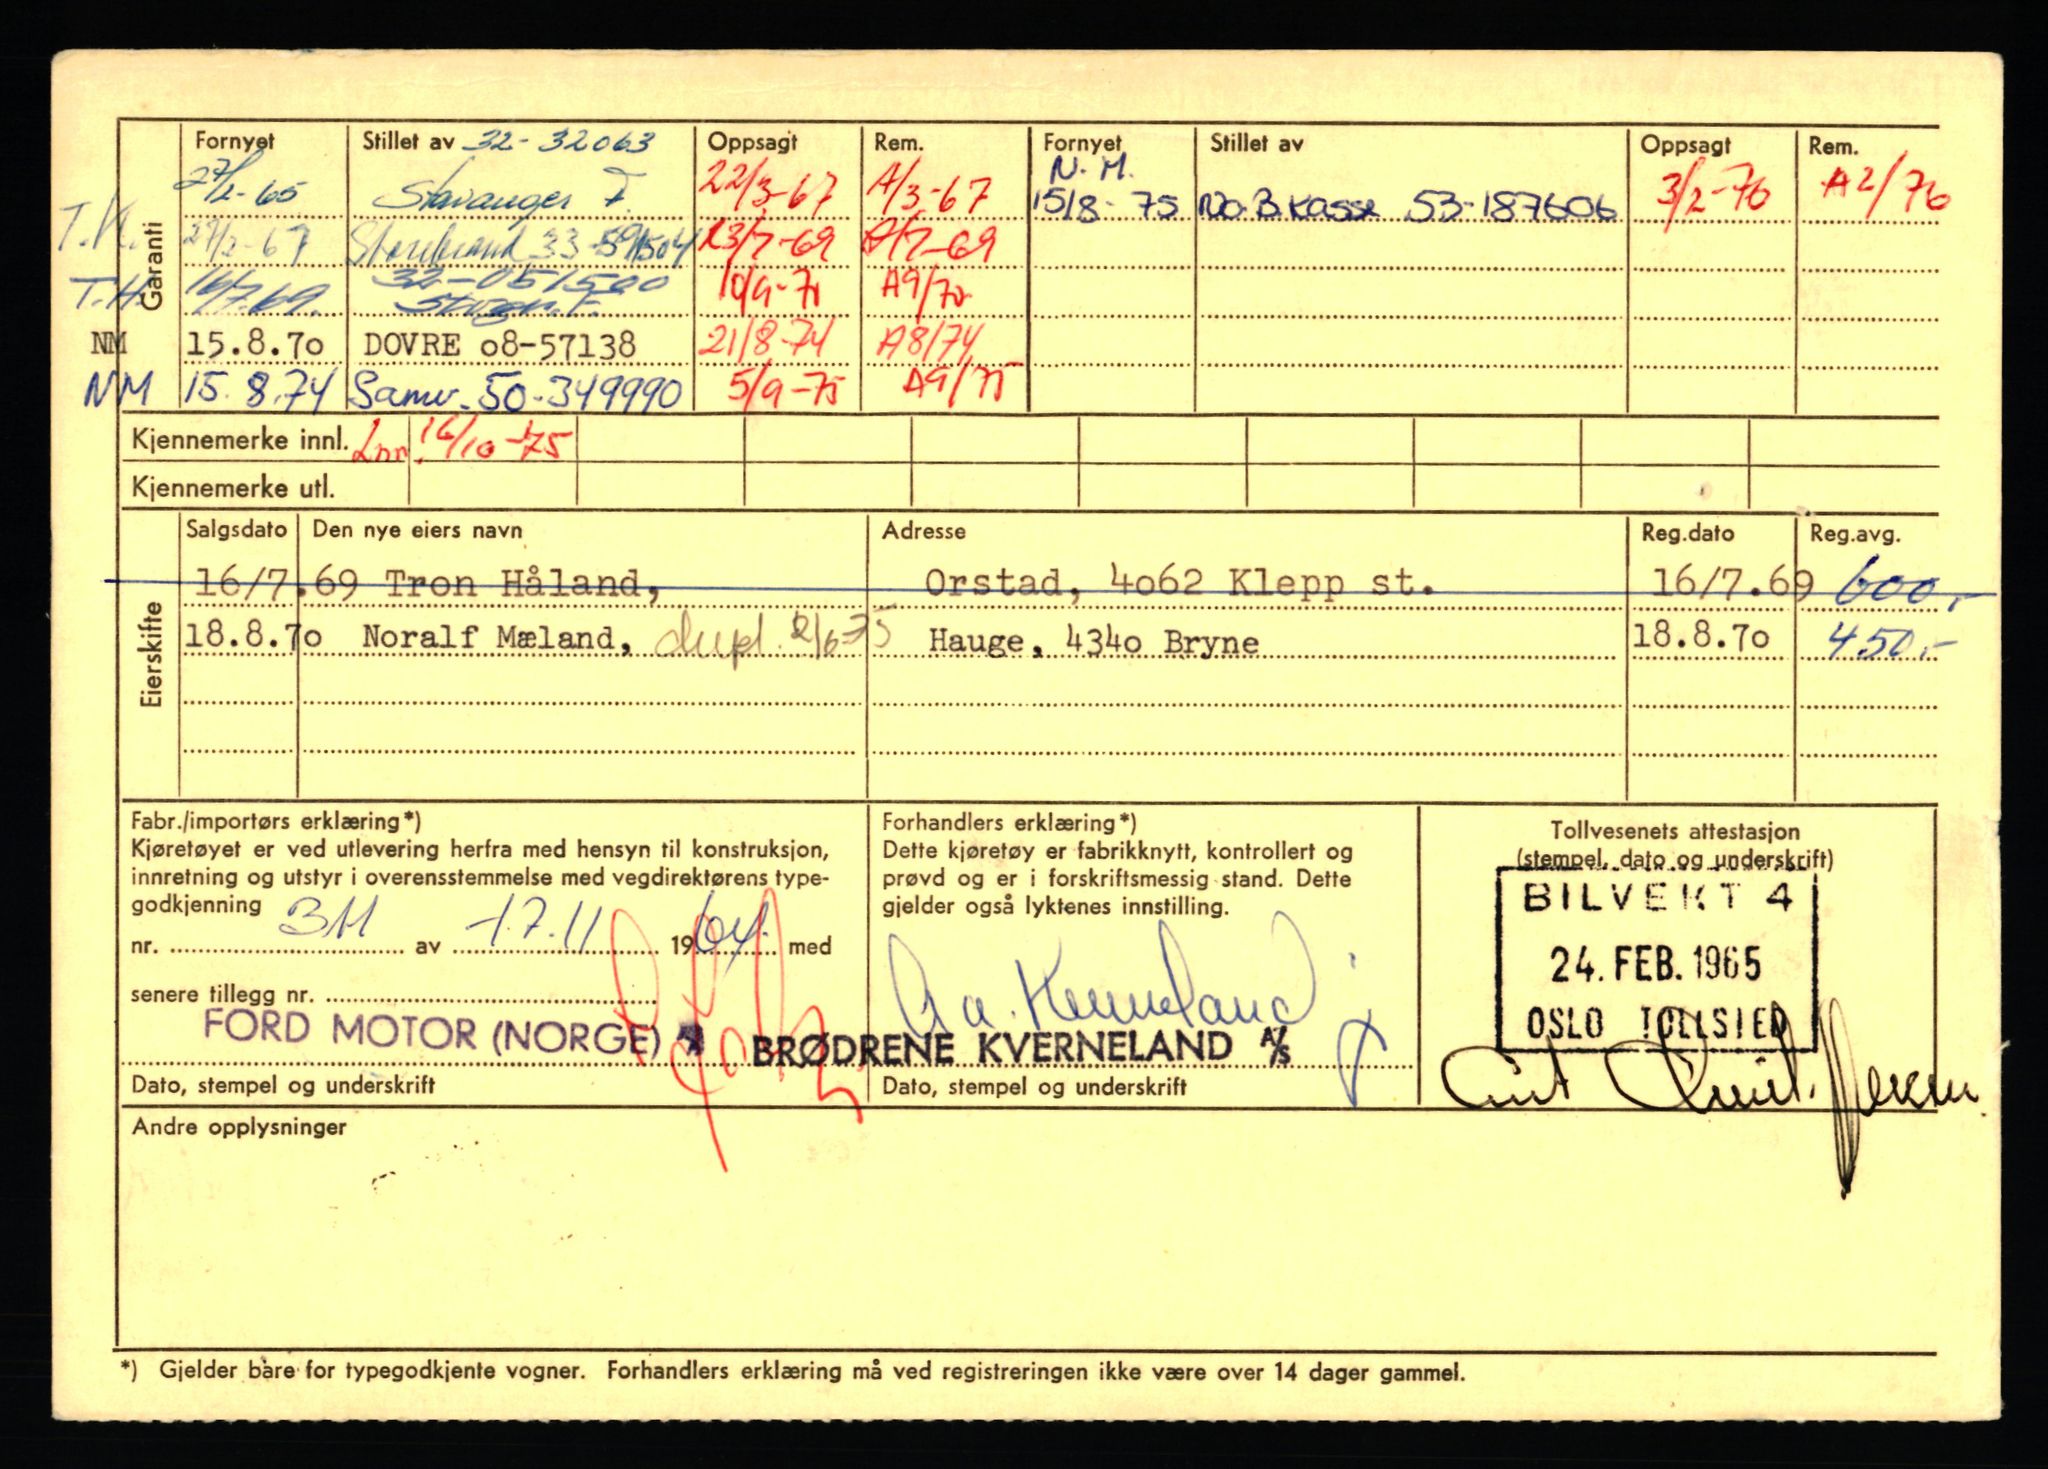 Fornyet Stillet av 32-32063 Oppsagt Rem. Fornyet Stillet av Oppsagt Rem.
Garanti
27/2-65 Stavanger F. 22/3-67 A/3-67 N.M. 15/8-75 No.B.kasse 53-187606 3/2-76 A2/76
T.H. 27/2-67 Storebrand 33-591504 23/7-69 A/7-69
T.H. 16/7.69. 32-051500 10/9-70 A9/70
NM 15.8.7o DOVRE o8-57138 21/8-74 A8/74
NM 15.8.74 Samv. 50-349990 5/9-75 A9/75
Kjennemerke innl. Inn. 16/10-75
Kjennemerke utl.
Eierskifte
Salgsdato Den nye eiers navn Adresse Reg.dato Reg.avg.
16/7.69 Tron Håland, Orstad, 4o62 Klepp st. 16/7.69 600,-
18.8.7o Noralf Mæland, dupl. 2/6-75 Hauge, 434o Bryne 18.8.7o 450,-
Fabr./importørs erklæring*)
Kjøretøyet er ved utlevering herfra med hensyn til konstruksjon,
innretning og utstyr i overensstemmelse med vegdirektørens type-
godkjenning
nr. 311 av 17.11 1964. med
senere tillegg nr.
FORD MOTOR (NORGE)
Dato, stempel og underskrift
Forhandlers erklæring*)
Dette kjøretøy er fabrikknytt, kontrollert og
prøvd og er i forskriftsmessig stand. Dette
gjelder også lyktenes innstilling.
Aa. Kverneland
BRØDRENE KVERNELAND A/S
Dato, stempel og underskrift
Tollvesenets attestasjon
(stempel, dato og underskrift)
BILVEKT 4
24. FEB. 1965
OSLO TOLLSTED
Andre opplysninger
*) Gjelder bare for typegodkjente vogner. Forhandlers erklæring må ved registreringen ikke være over 14 dager gammel.